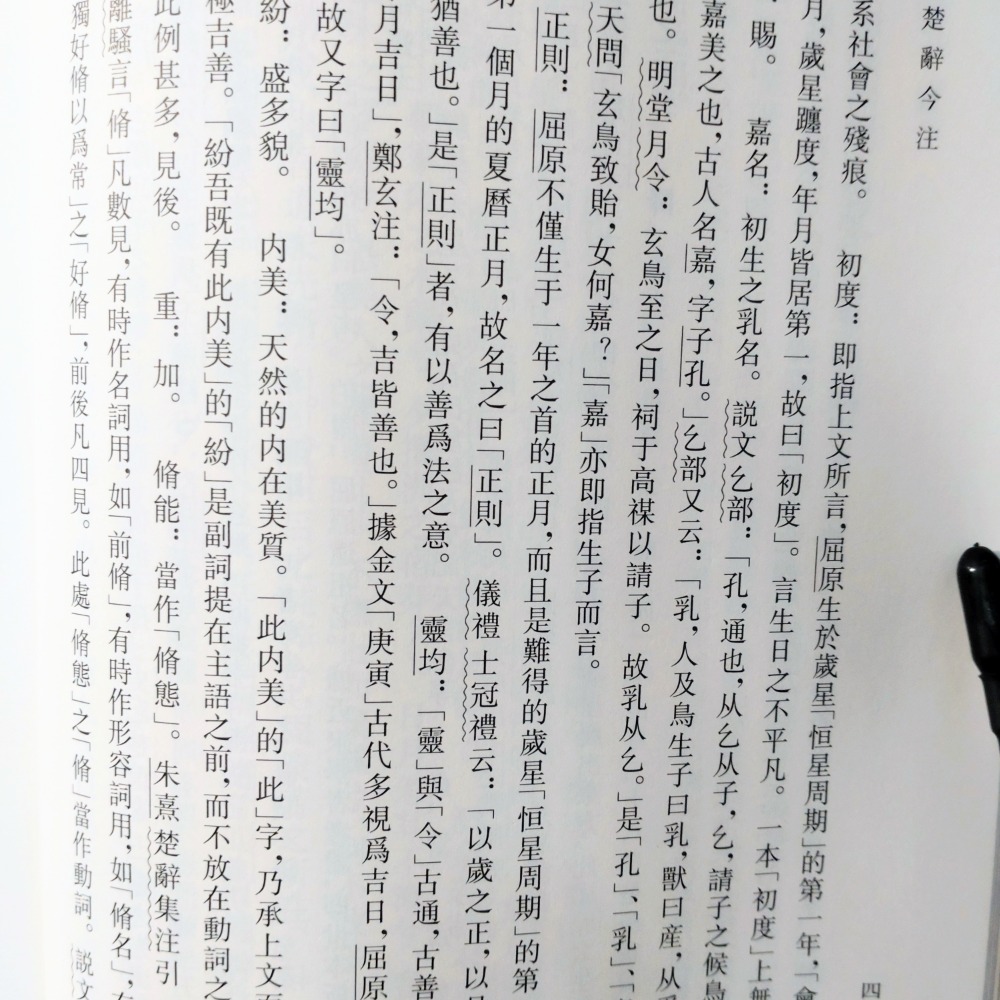 楚辭今注
四
系社會之殘痕。　初度：即指上文所言，屈原生於歲星「恒星周期」的第一年，「會
月，歲星躔度，年月皆居第一，故曰「初度」。言生日之不平凡。一本「初度」上無
賜。　嘉名：初生之乳名。説文乞部：「孔，通也，从乞从子，乞，請子之候鳥
嘉美之也，古人名嘉，字子孔。」乞部又云：「乳，人及鳥生子曰乳，獸曰産，从
也。明堂月令：玄鳥至之日，祠于高禖以請子。故乳从乞。」是「孔」、「乳」、
天問「玄鳥致貽，女何嘉？」「嘉」亦即指生子而言。
正則：屈原不僅生于一年之首的正月，而且是難得的歲星「恒星周期」的第
第一個月的夏曆正月，故名之曰「正則」。儀禮士冠禮云：「以歲之正，以月
猶善也。」是「正則」者，有以善爲法之意。　靈均：「靈」與「令」古通，古善
月吉日」，鄭玄注：「令，吉皆善也。」據金文「庚寅」古代多視爲吉日，屈原
故又字曰「靈均」。
紛：盛多貌。　内美：天然的内在美質。「此内美」的「此」字，乃承上文而
極吉善。「紛吾既有此内美」的「紛」是副詞提在主語之前，而不放在動詞之
此例甚多，見後。　重：加。　脩能：當作「脩態」。朱熹楚辭集注引
離騷言「脩」凡數見，有時作名詞用，如「前脩」，有時作形容詞用，如「脩名」，
獨好脩以爲常」之「好脩」，前後凡四見。此處「脩態」之「脩」當作動詞。説文